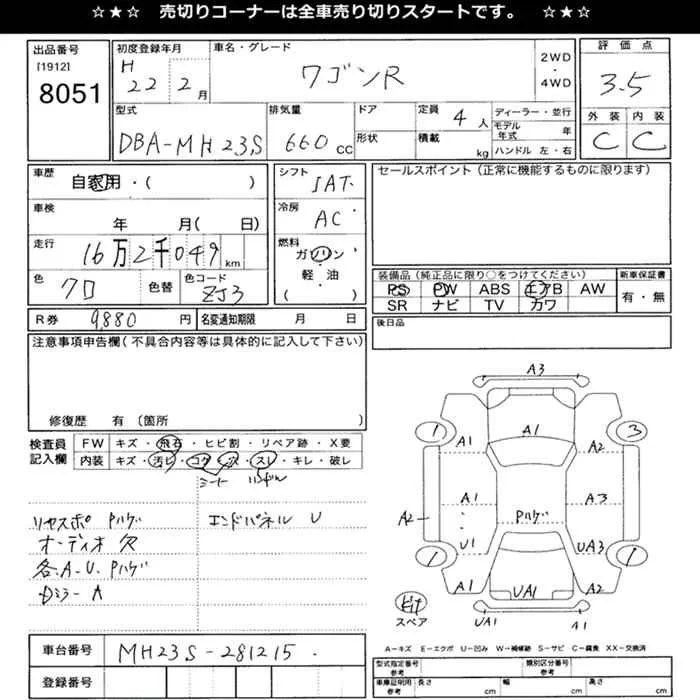 ☆★☆ 売切りコーナーは全車売り切りスタートです。 ☆★☆
出品番号
[1912]
8051
初度登録年月
H
22 2月
車名・グレード
ワゴンR
2WD
・
4WD
評価点
3.5
外装 内装
C C
型式
DBA-MH23S
排気量
660 CC
ドア
形状
定員 4人
積載 kg
ディーラー・並行
モデル年式 年
ハンドル 左・右
車歴
自家用・( )
車検
年 月( 日)
走行
16万2千049km
色
クロ
色替
色コード
ZJ3
シフト
IAT
冷房
AC
燃料
ガソリン
軽・油
( )
セールスポイント(正常に機能するものに限ります)
装備品(純正品に限り○をつけてください)
PS PW ABS エアB AW
SR ナビ TV カワ
新車保証書
有・無
R券 9880円
名変通知期限 月 日
後日品
注意事項申告欄(不具合内容等は具体的に記入して下さい)
修復歴 有〔箇所 〕
検査員
記入欄
FW キズ・飛石・ヒビ割・リペア跡・X要
内装 キズ・汚レ・コゲ・穴・スレ・キレ・破レ
シート ハンドル
リヤスポ Pハゲ
エンドパネル U
オーディオ欠
各A-U.Pハゲ
Dミラー A
A3
1 A1 A2 3
A1 A3
A2
Pハゲ
U1 UA3
1 1
A1 UA1 A2
スペア
UA1 A1
A-キズ E-エクボ U-凹み W-補修跡 S-サビ C-腐食 XX-交換済
車台番号
MH23S-281215.
登録番号
型式指定番号
参考
類別区分番号
参考
車庫証明用
参考
長さ cm
幅 cm
高さ cm